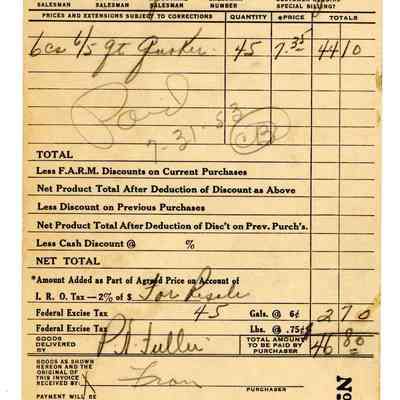 SALESMAN SALESMAN NUMBER SPECIAL BILLING?
PRICES AND EXTENSIONS SUBJECT TO CORRECTIONS QUANTITY @PRICE TOTALS
6cs 6/5 qt Quaker 45 7.35 44 10
Paid
7-31-53 CB
TOTAL
Less F.A.R.M. Discounts on Current Purchases
Net Product Total After Deduction of Discount as Above
Less Discount on Previous Purchases
Net Product Total After Deduction of Disc't on Prev. Purch's.
Less Cash Discount @ %
NET TOTAL
*Amount Added as Part of Agreed Price on Account of
I. R. O. Tax—2% of $ For Resale
Federal Excise Tax 45 Gals. @ 6¢ 2 70
Federal Excise Tax Lbs. @ .75¢
GOODS DELIVERED BY P.H. Fuller TOTAL AMOUNT TO BE PAID BY PURCHASER 46 80
GOODS AS SHOWN
HEREON AND THE
ORIGINAL OF
THIS INVOICE
RECEIVED BY: X PURCHASER
PAYMENT WILL BE
ON